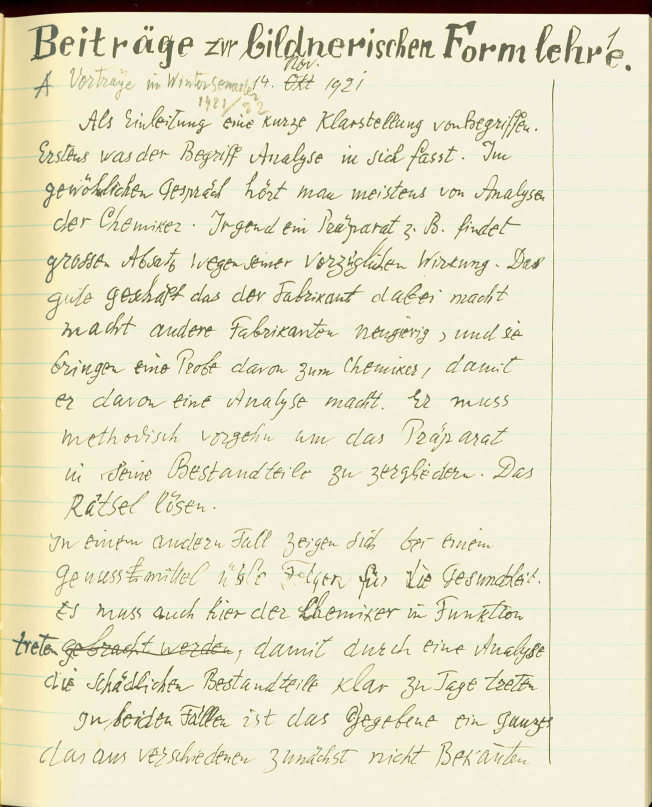 Beiträge zur bildnerischen Formlehre.
1
A Vorträge im Wintersemester 14. Okt Nov. 1921
1921/22
Als Einleitung eine kurze Klarstellung von Begriffen.
Erstens was der Begriff Analyse in sich fasst. Im
gewöhlichen Gespräch hört man meistens von Analysen
der Chemiker. Irgend ein Präparat z. B. findet
grossen Absatz wegen seiner vorzüglichen Wirkung. Das
gute geschäft das der Fabrikant dabei macht
macht andere Fabrikanten neugierig, und sie
bringen eine Probe davon zum Chemiker, damit
er davon eine Analyse macht. Er muss
methodisch vorgehn um das Präparat
in seine Bestandteile zu zergliedern. Das
Rätsel lösen.
In einem andern Fall zeigen sich bei einem
Genussmittel üble Folgen für die Gesundheit.
Es muss auch hier der Chemiker in Funktion
treten gebracht werden, damit durch eine Analyse
die schädlichen Bestandteile klar zu Tage treten
In beiden Fällen ist das Gegebene ein ganzes
das aus verschiedenen zunächst nicht Bekañten